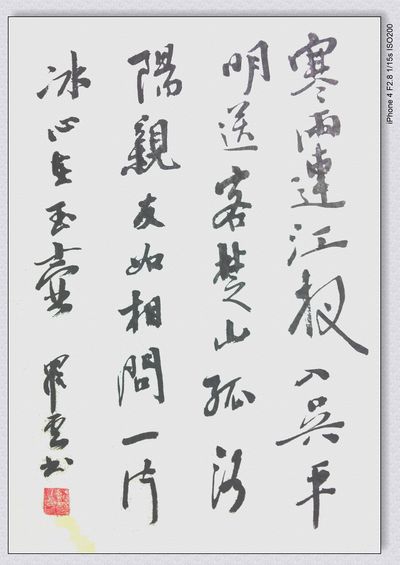 寒雨連江夜入吳平
明送客楚山孤洛
陽親友如相問一片
冰心在玉壺
雲书
iPhone 4 F2.8 1/15s ISO200